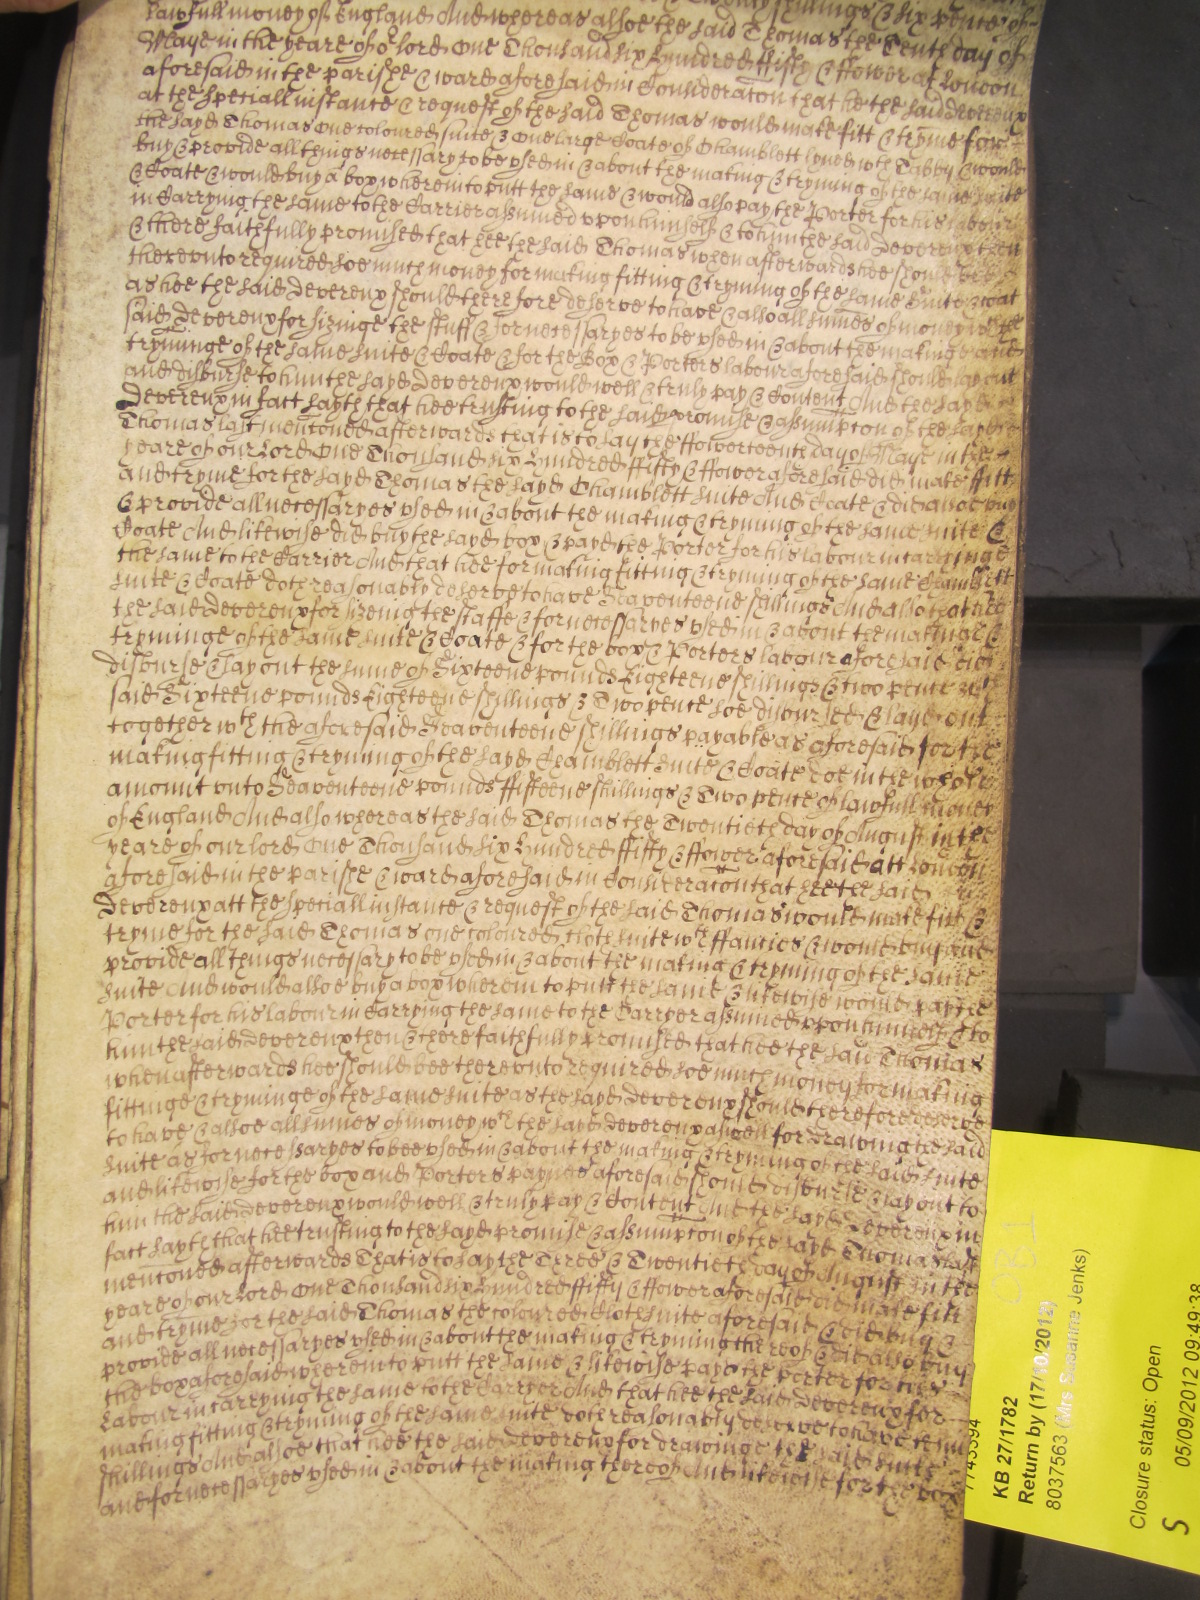 lawfull money of England And whereas alsoe the said Thomas the Tenth day of
Maye in the yeare of or lord One Thousand six hundred ffifty & ffower at London
aforesaid in the parishe & ward aforesaid in Consideraton that he the said Devereux
at the speciall instance & request of the said Thomas would make fitt & tryme for
the sayd Thomas One coloured suite & One large Coate of Chamblett lyned wth Tabby & would
buy & provide all things necessary to be vsed in & about the making & tryming of the same suite
& Coate & would buy a box wherein to putt the same & would also pay the Porter for his labour
in Carrying the same to the Carrier assumed vpon himself & to him the said Devereux then
& there faithfully promised that hee the said Thomas when afterwards hee should bee
therevnto required soe much money for making fitting & tryming of the same suite & Coat
as hee the said Devereux should therefore deserve to have & also all sumes of money wch the
said Devereux for sizinge the stuff & for necessaryes to be vsed in & about the makinge and
tryminge of the same suite & Coate & for the Box & Porters labour aforesaid should lay out
and disburse to him the sayd Devereux would well & truly pay & Content And the sayd
Devereux in fact sayth that hee trusting to the said promise & assumpton of the sayd
Thomas last mentoned afterwards that is to say the ffowerteenth day of Maye in the
yeare of our Lord One Thousand six hundred ffifty & ffower aforesaid did make fitt
and tryme for the sayd Thomas the sayd Chamblett suite And Coate & did also buy
& provide all necessaryes vsed in & about the making & tryming of the same suite &
Coate And likewise did buy the sayd box & payd the Porter for his labour in carryinge
the same to the Carrier And that hee for making fitting & tryming of the same Chamblett
suite & Coate doth reasonably deserve to have Seaventeene shillings And also that hee
the said Devereux for sizeing the stuffe & for necessaryes vsed in & about the makinge &
tryminge of the same suite & Coate & for the box & Porters labour aforesaid did
disburse & lay out the sume of Sixteene pounds Eighteene shillings & two pence
said Sixteene pounds Eighteene shillings & Two pence soe disbursed & layd out
together wth the aforesaid Seaventeene shillings payable as aforesaid for the
making fitting & tryming of the sayd Chamblett suite & Coate doe in the whole
amount vnto Seaventeene pounds ffifteene shillings & Two pence of lawfull money
of England And also whereas the said Thomas the Twentieth day of August in the
yeare of our lord One Thousand six hundred ffifty & ffower aforesaid att London
aforesaid in the parishe & ward aforesaid in Consideraton that hee the said
Devereux att the speciall instance & request of the said Thomas would make fitt &
tryme for the said Thomas one coloured cloth suite wth ffancies & would buy and
provide all things necessary to be vsed in & about the making & tryming of the same
suite And would alsoe buy a box wherein to putt the same & likewise would pay the
Porter for his labour in Carrying the same to the Carryer assumed vpon himself & to
him the said Devereux then & there faithfully promised that hee the said Thomas
when afterwards hee should bee therevnto required soe much money for making
fittinge & tryminge of the same suite as the sayd Devereux should therefore deserve
to have & alsoe all sumes of money wch the sayd Devereux aswell for drawing the said
suite as for necessaryes to bee vsed in & about the making & tryming of the said suite
and likewise for the box and Porters paynes aforesaid should disburse & lay out to
him the said Devereux would well & truly pay & Content And the sayd Devereux in
fact sayth that hee trusting to the sayd promise & assumpton of the sayd Thomas last
mentoned afterwards That is to say the Three & Twentieth day of August in the
yeare of our Lord One Thousand six hundred ffifty & ffower aforesaid did make fitt
and tryme for the said Thomas the coloured Cloth suite aforesaid & did buy &
provide all necessaryes vsed in & about the making & tryming thereof & did also buy
the box aforesaid wherein to putt the same & likewise payd the porter for his
Labour in carrying the same to the Carryer And that hee the said Devereux for
making fitting & tryming of the same suite doth reasonably deserve to have tenn
shillings And alsoe that hee the said Devereux for drawinge the said suite
and for necessaryes vsed in & about the making thereof And likewise for the box
7743394
KB 27/1782
Return by (17/10/2012)
8037563 (Mrs Susanne Jenks)
OBJ
Closure status: Open
05/09/2012 09:49:38
S